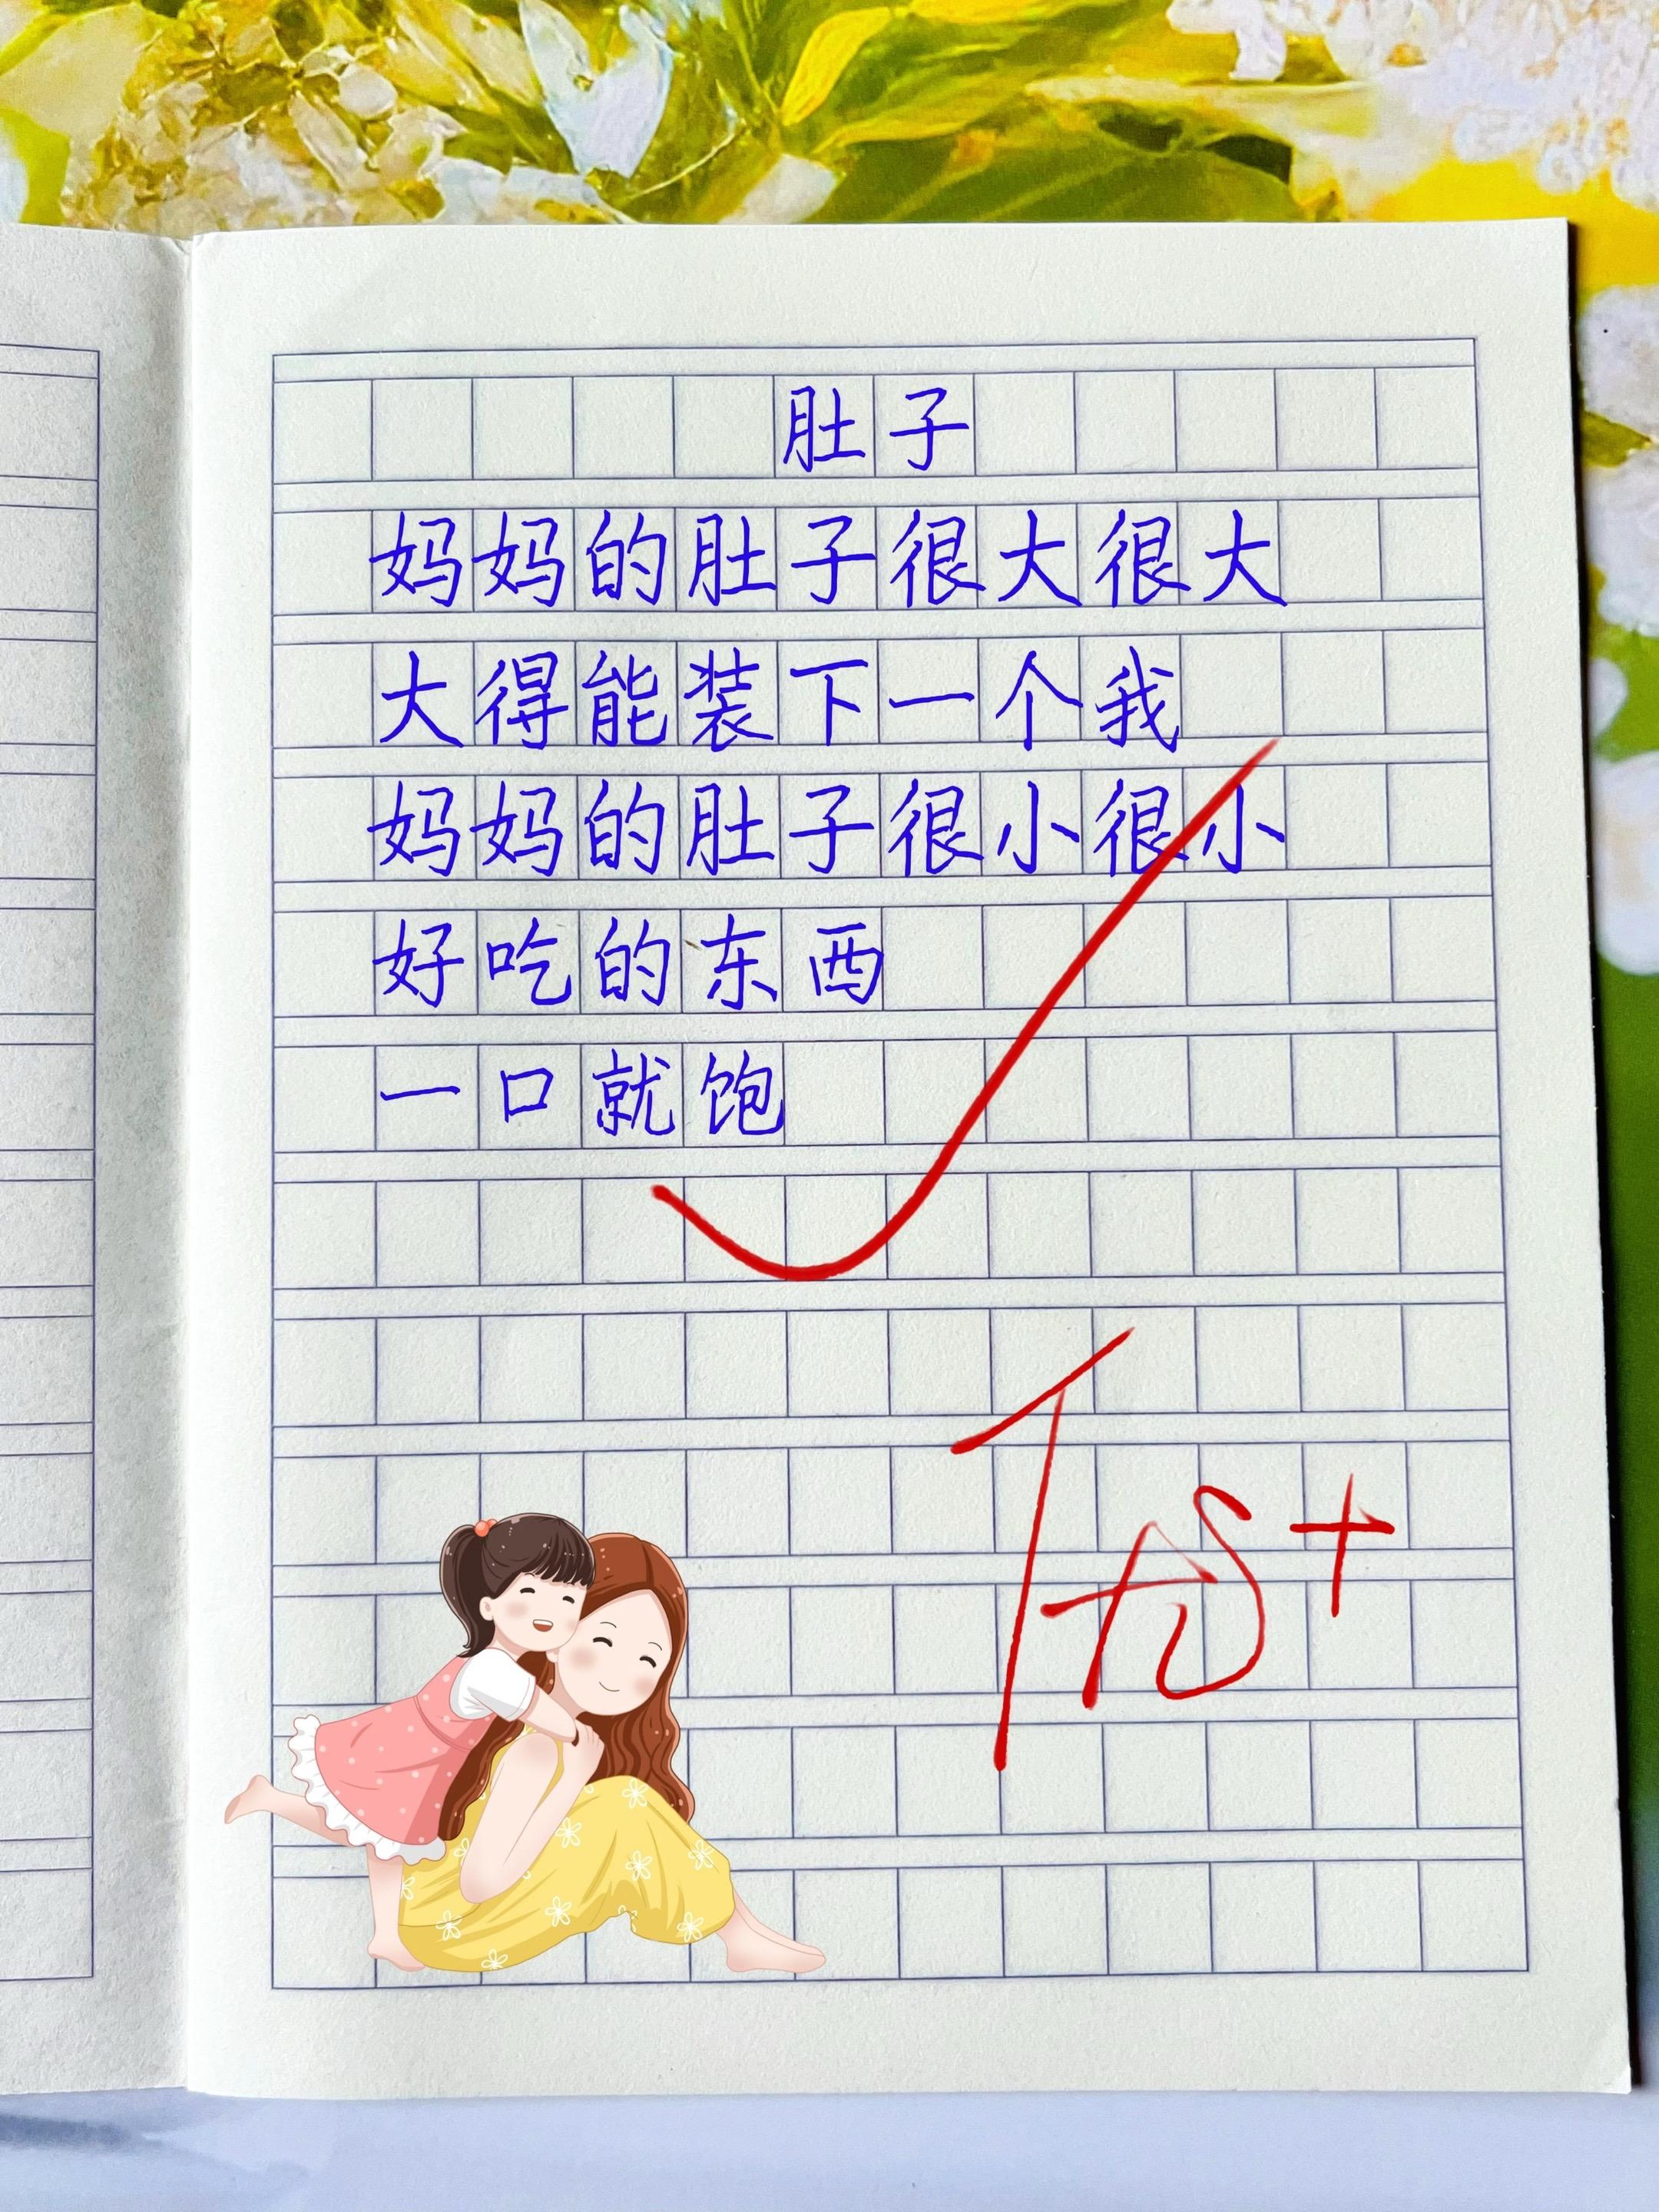 肚子
妈妈的肚子很大很大
大得能装下一个我
妈妈的肚子很小很小
好吃的东西
一口就饱